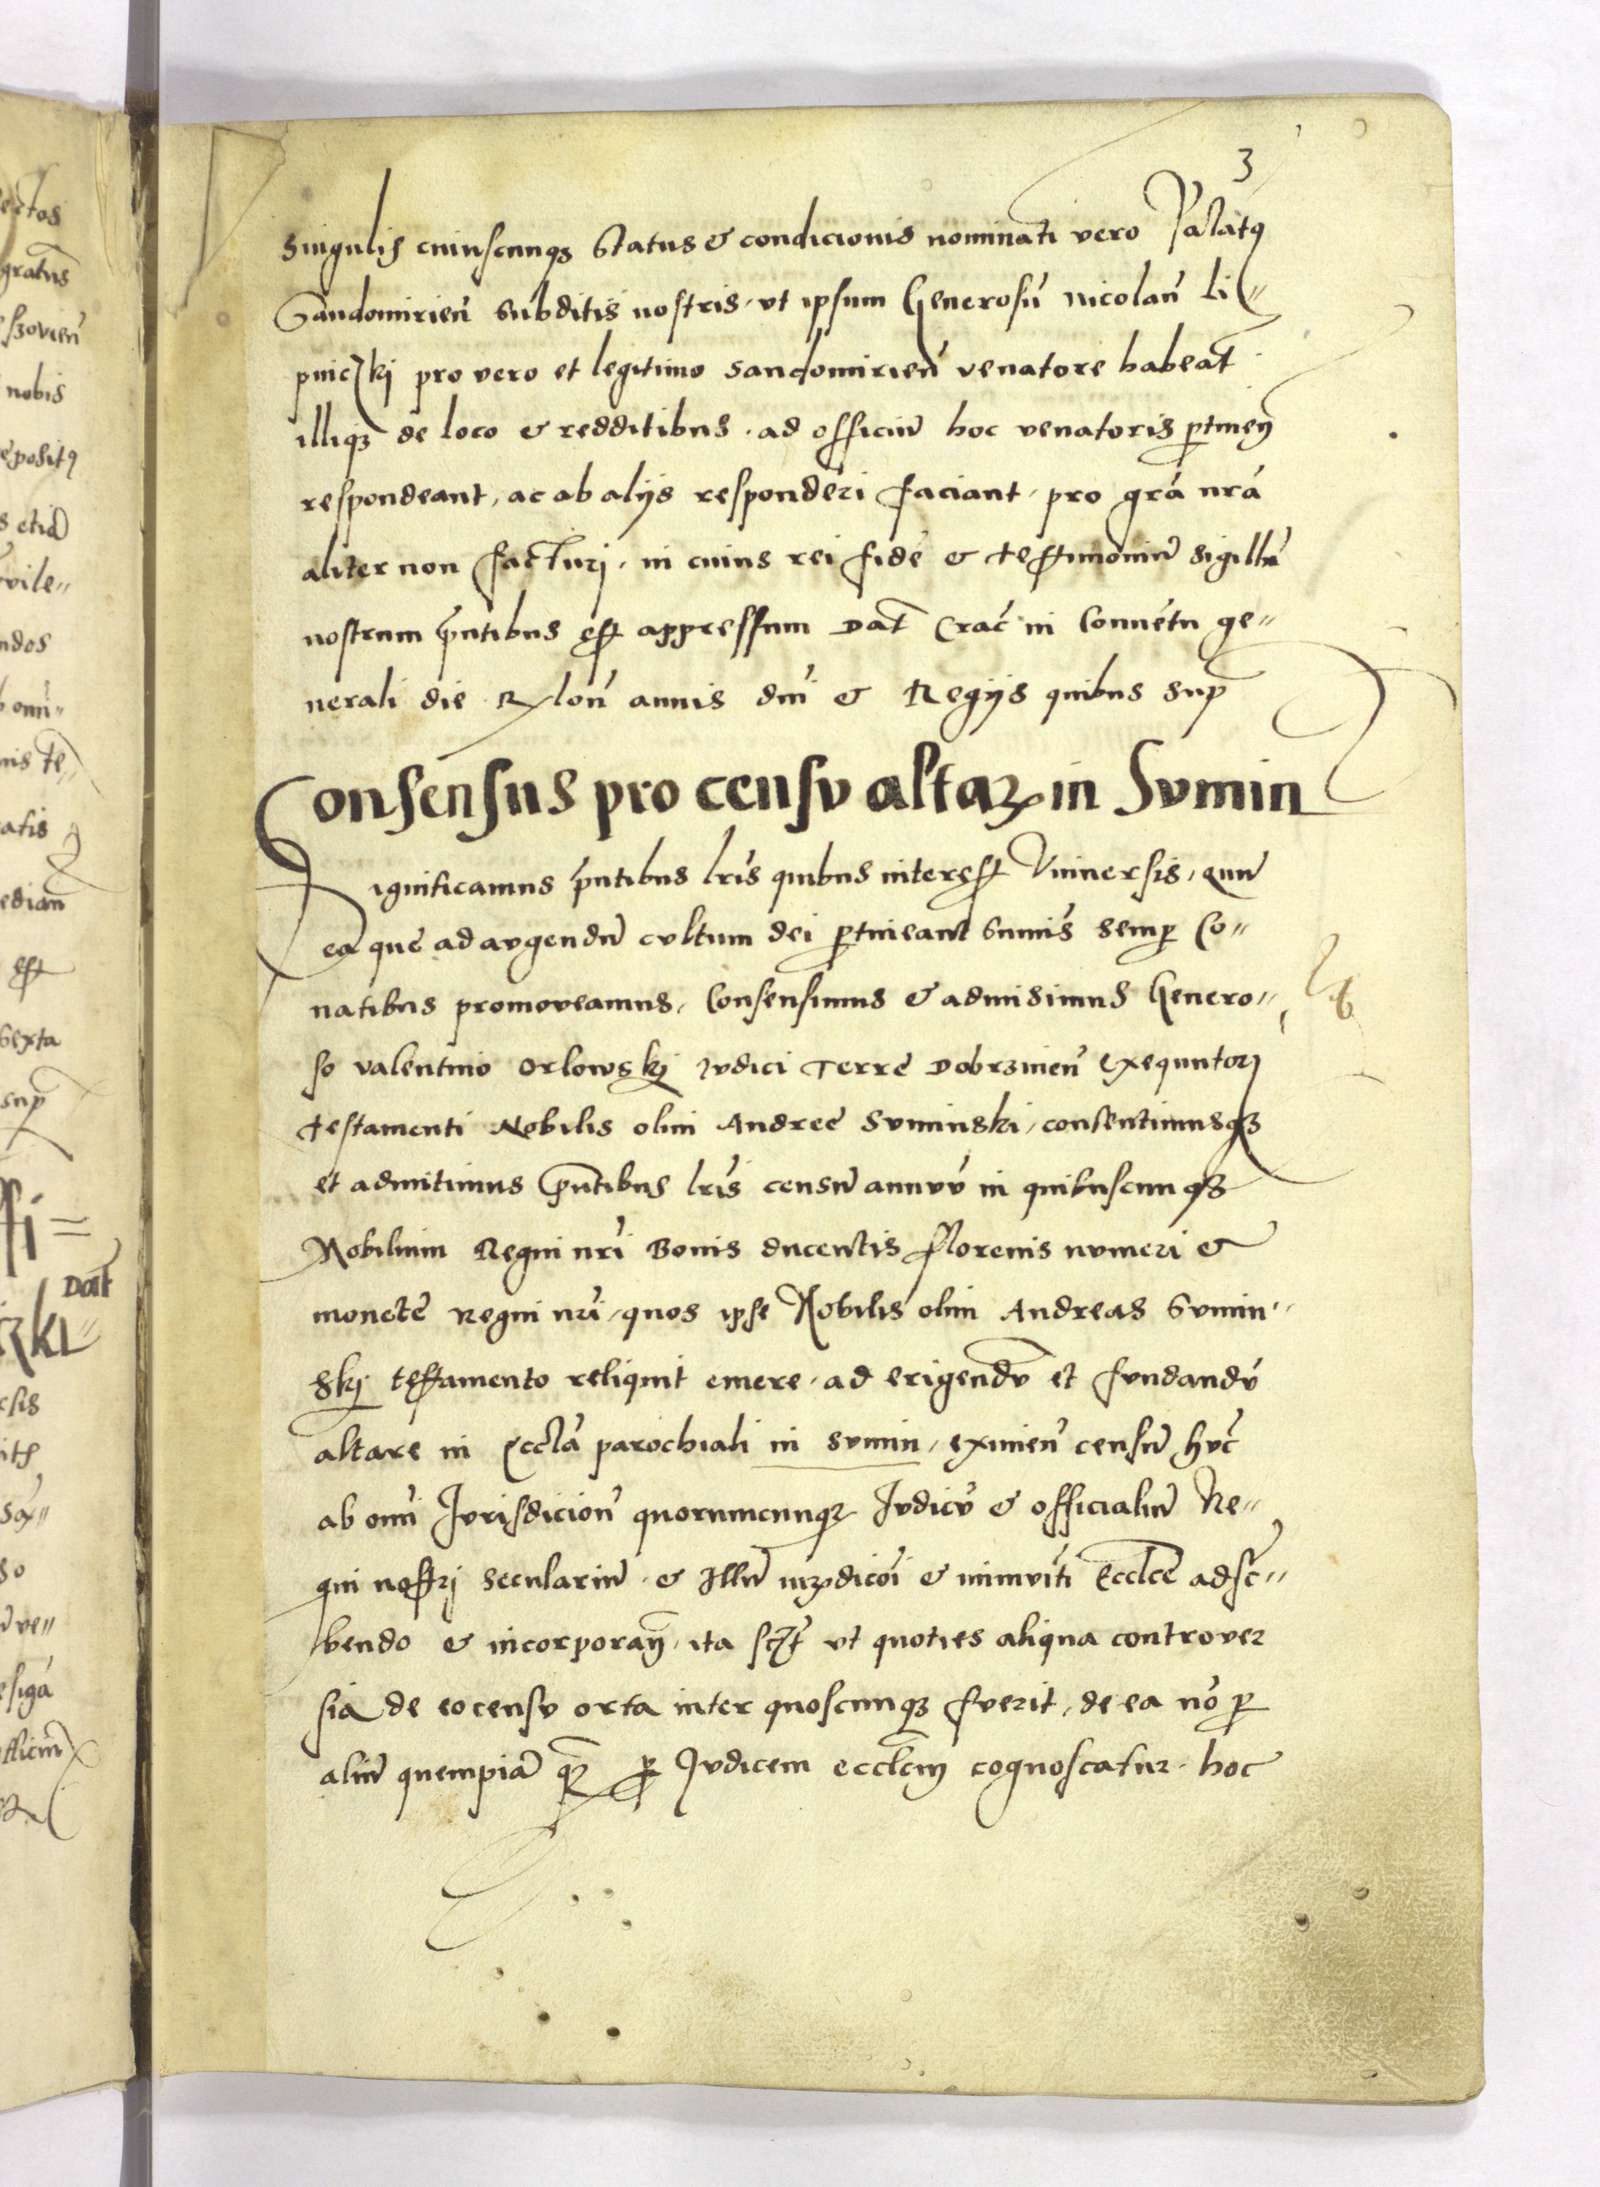 3
singulis cuiuscunqz status & condicionis nominati vero Palat9
Sandomirien̄ subditis nostris, vt ipsum Generosū nicolaū li-
pniczkj pro vero et legitimo sandomirien̄ venatore habeāt
illiqz de loco & redditibus, ad officiū hoc venatoris ptineñ
respondeant, ac ab alijs responderi faciant, pro grā nrā
aliter non facturj, in cuius rei fidē & testimoniū sigillū
nostrum pntibus est appressum Dat̄ Crac̄ in Conuētu ge-
nerali die lōn annis dnī & Regijs quibus sup
Consensus pro censv altaꝝ in Svmin
Significamus pntibus lrīs quibus interest Vniuersis, quū
ea quē ad avgendū cvltum dei ptineant summīs semp Co-
natibus promoveamus, Consensimus & admisimus Genero-
so valentino Orlowskj Jvdici Terrē Dobrzinien̄ exequutorj
testamenti Nobilis olim Andreē Svminski, consentimusqz
et admitimus pntibus lrīs censū annvū in quibuscunqz
Nobilium Regni nrī Bonis ducentis florenis nvmeri &
monetē Regni nrī, quos ipse Nobilis olim Andreas Svmin-
skj testamento reliquit emere, ad erigendū et fvndandū
altare in Ecclā parochiali in svmin, eximen̄ censū hvc̄
ab omī Jvrisdicion̄ quorumcunqz Jvdicū & officialiū Re-
gni nostrj secularium & Illū & Ecclcē adsc-
bendo & incorporañ, ita sczt̄ vt quoties aliqua controver
sia de eo censv orta inter quoscunqz fverit, de ea nō p
aliū quempiā qz p Jvdicem ecclcm̄ cognoscatur, hoc